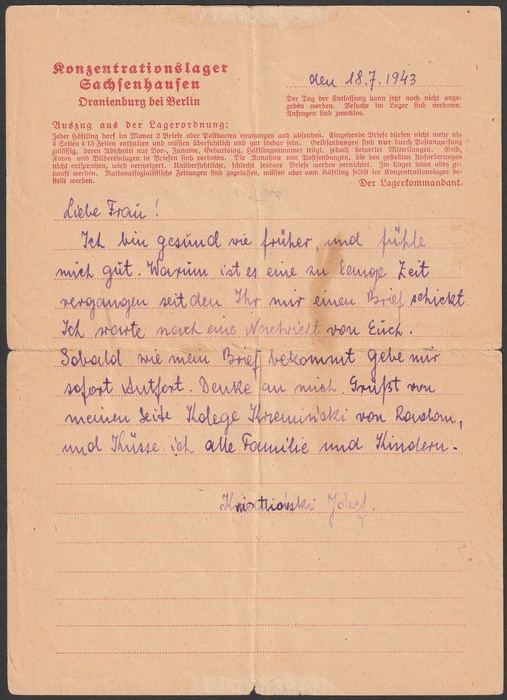 Konzentrationslager
Sachsenhausen
Oranienburg bei Berlin
den 18.7.1943
Der Tag der Entlassung kann jetzt noch nicht ange-
geben werden. Besuche im Lager sind verboten.
Anfragen sind zwecklos.
Auszug aus der Lagerordnung:
Jeder Häftling darf im Monat 2 Briefe oder Postkarten empfangen und absenden. Eingehende Briefe dürfen nicht mehr als
4 Seiten à 15 Zeilen enthalten und müssen übersichtlich und gut lesbar sein. Geldsendungen sind nur durch Postanweisung
zulässig, deren Abschnitt nur Vor-, Zuname, Geburtstag, Häftlingsnummer trägt, jedoch keinerlei Mitteilungen. Geld,
Fotos und Bildereinlagen in Briefen sind verboten. Die Annahme von Postsendungen, die den gestellten Anforderungen
nicht entsprechen, wird verweigert. Unübersichtliche, schlecht lesbare Briefe werden vernichtet. Im Lager kann alles ge-
kauft werden. Nationalsozialistische Zeitungen sind zugelassen, müssen aber vom Häftling selbst im Konzentrationslager be-
stellt werden.
Der Lagerkommandant.
Liebe Frau!
Ich bin gesund wie früher, und fühle
mich gut. Warum ist es eine zu lange Zeit
vergangen seit den Ihr mir einen Brief schickt.
Ich warte nach eine Nachricht von Euch.
Sobald wie mein Brief bekommt gebe mir
sofort Antfort. Denke an mich. Grüßt von
meinen Seite Kolege Krzemiński von Radom,
und Küsse ich alle Familie und Kindern.
Józef.